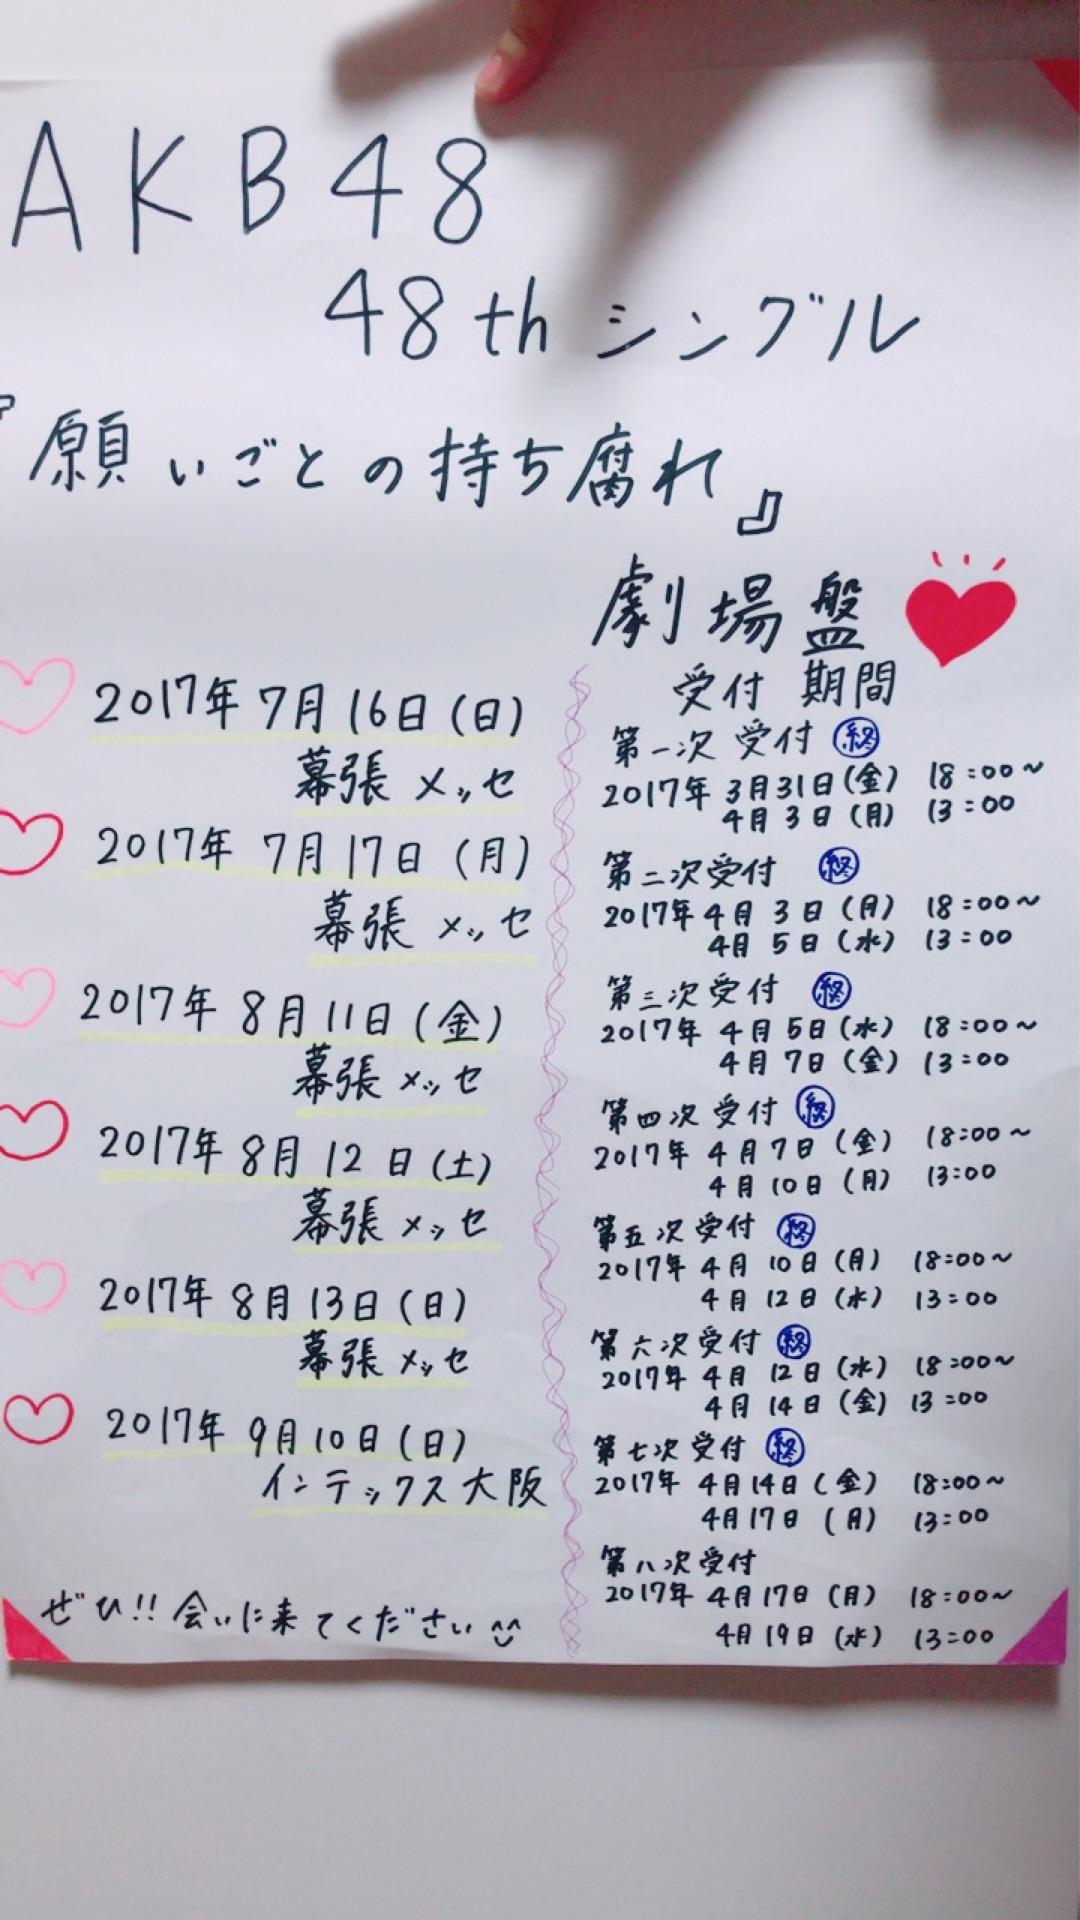 AKB48
48thシングル
『願いごとの持ち腐れ』
2017年 7月16日(日)
幕張メッセ
2017年 7月17日(月)
幕張メッセ
2017年 8月11日(金)
幕張メッセ
2017年 8月12日(土)
幕張メッセ
2017年 8月13日(日)
幕張メッセ
2017年 9月10日(日)
インテックス大阪
ぜひ!!会いに来てください^^
劇場盤
受付 期間
第一次受付 終
2017年 3月31日(金) 18:00~
4月3日(月) 13:00
第二次受付 終
2017年 4月3日(月) 18:00~
4月5日(水) 13:00
第三次受付 終
2017年 4月5日(水) 18:00~
4月7日(金) 13:00
第四次受付 終
2017年 4月7日(金) 18:00~
4月10日(月) 13:00
第五次受付 終
2017年 4月10日(月) 18:00~
4月12日(水) 13:00
第六次受付 終
2017年 4月12日(水) 18:00~
4月14日(金) 13:00
第七次受付 終
2017年 4月14日(金) 18:00~
4月17日(月) 13:00
第八次受付
2017年 4月17日(月) 18:00~
4月19日(水) 13:00